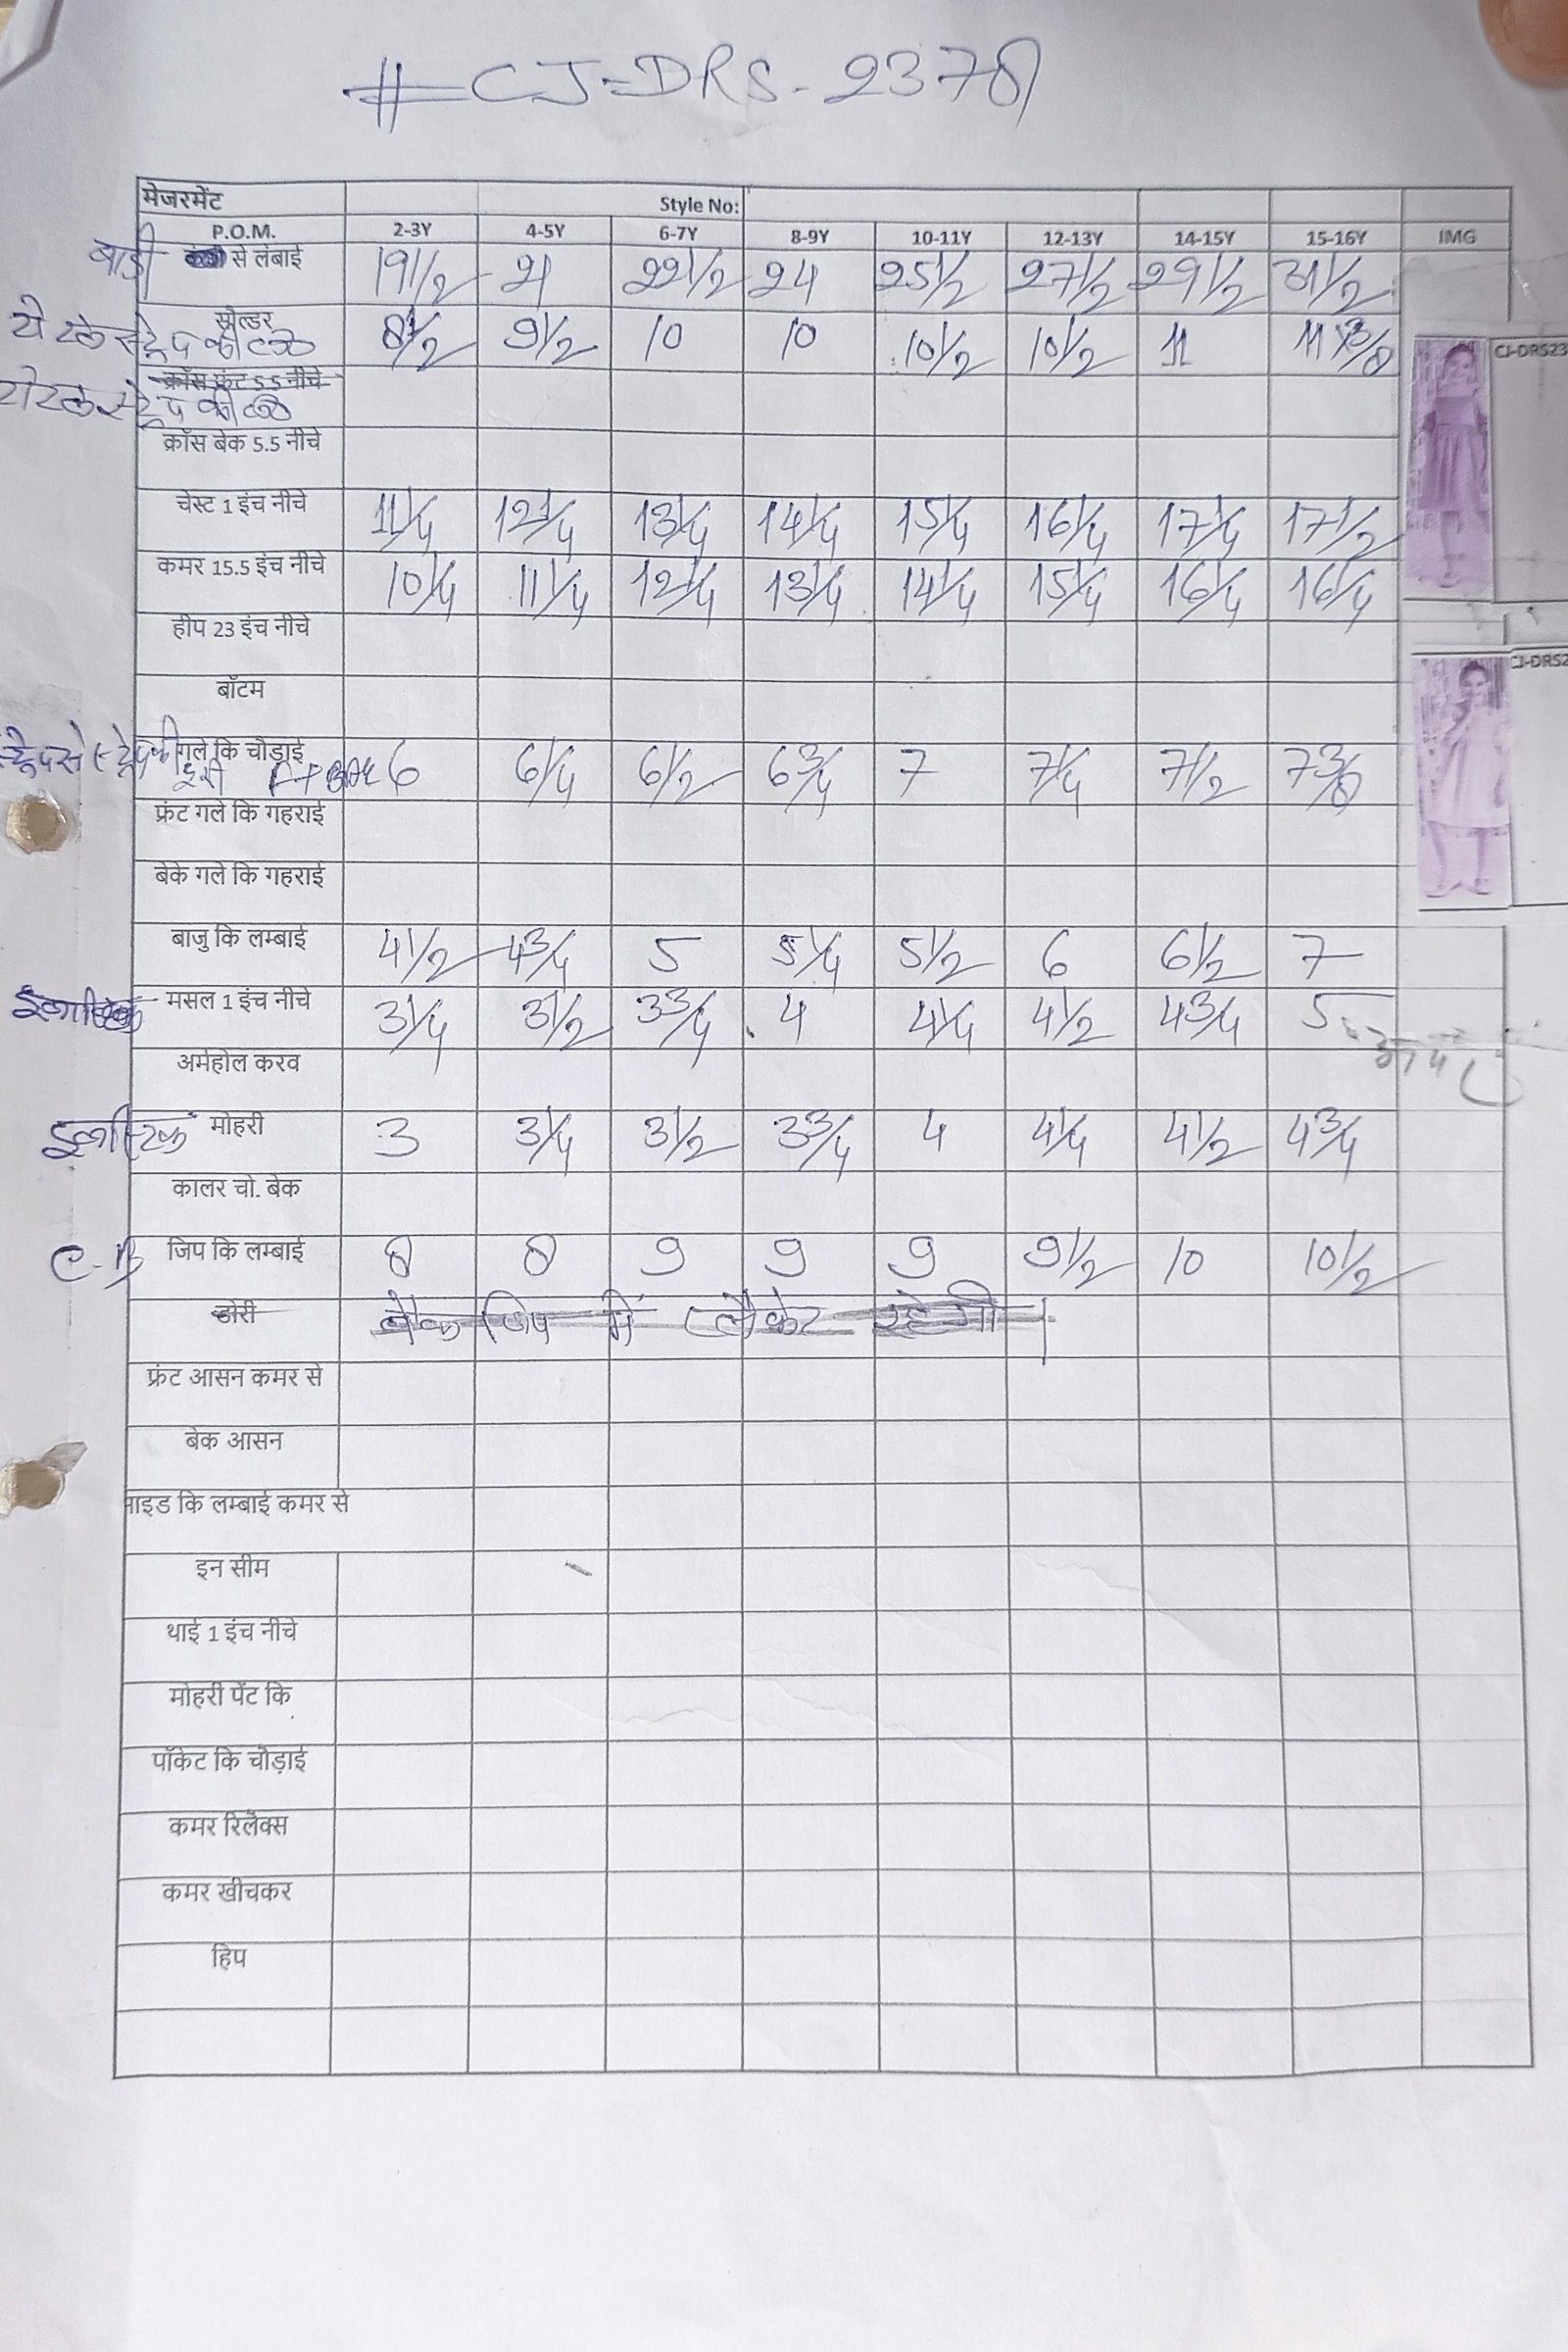 #CJ-DRS-2378
मेजरमेंट Style No:
P.O.M. 2-3Y 4-5Y 6-7Y 8-9Y 10-11Y 12-13Y 14-15Y 15-16Y IMG
बाडी से लंबाई 19 1/2 21 22 1/2 24 25 1/2 27 1/2 29 1/2 31 1/2
सोल्डर 8 1/2 9 1/2 10 10 10 1/2 10 1/2 11 11 3/8
CJ-DRS23
क्रॉस फ्रंट 5.5 नीचे
क्रॉस बेक 5.5 नीचे
चेस्ट 1 इंच नीचे 11 1/4 12 1/4 13 1/4 14 1/4 15 1/4 16 1/4 17 1/4 17 1/2
कमर 15.5 इंच नीचे 10 1/4 11 1/4 12 1/4 13 1/4 14 1/4 15 1/4 16 1/4 16 1/4
हीप 23 इंच नीचे
CJ-DRS2
बॉटम
गले कि चौड़ाई 6 6 1/4 6 1/2 6 3/4 7 7 1/4 7 1/2 7 3/8
फ्रंट गले कि गहराई
बेके गले कि गहराई
बाजु कि लम्बाई 4 1/2 4 3/4 5 5 1/4 5 1/2 6 6 1/2 7
मसल 1 इंच नीचे 3 1/4 3 1/2 3 3/4 4 4 1/4 4 1/2 4 3/4 5
अर्महोल करव
इलास्टिक मोहरी 3 3 1/4 3 1/2 3 3/4 4 4 1/4 4 1/2 4 3/4
कालर चो. बेक
C.B जिप कि लम्बाई 8 8 9 9 9 9 1/2 10 10 1/2
डोरी बैक जिप में प्लैकेट रहेगी।
फ्रंट आसन कमर से
बेक आसन
साइड कि लम्बाई कमर से
इन सीम
थाई 1 इंच नीचे
मोहरी पेंट कि
पॉकेट कि चौड़ाई
कमर रिलेक्स
कमर खीचकर
हिप